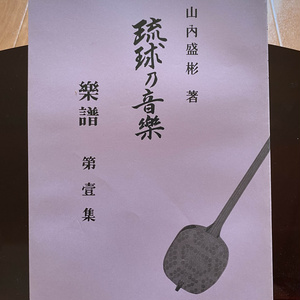 山內盛彬 著
琉球の音樂
樂譜 第壹集